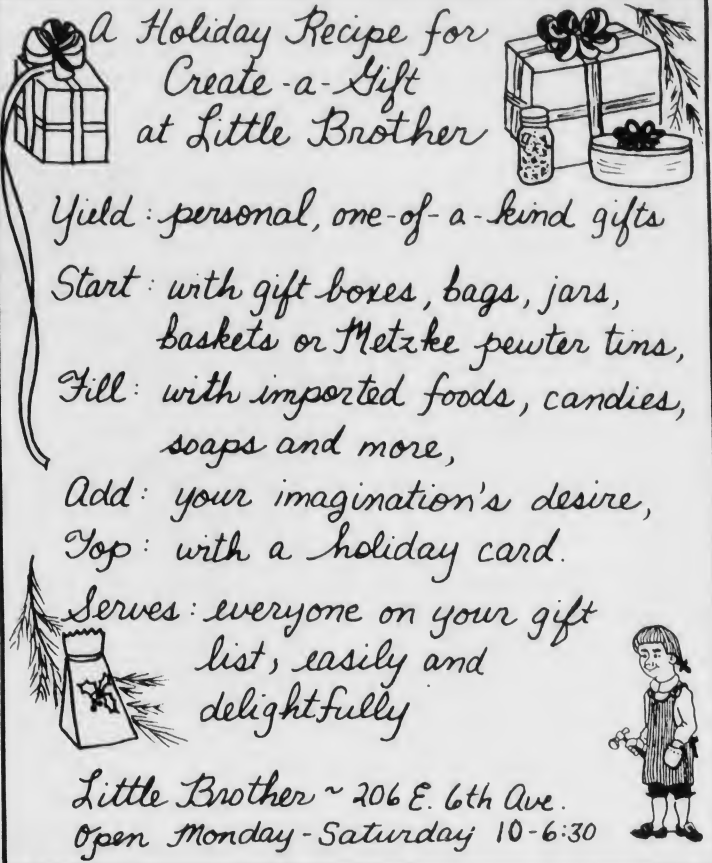 A Holiday Recipe for
Create-a-Gift
at Little Brother
Yield: personal, one-of-a-kind gifts
Start: with gift boxes, bags, jars,
baskets or Metzke pewter tins,
Fill: with imported foods, candies,
soaps and more,
Add: your imagination's desire,
Top: with a holiday card.
Serves: everyone on your gift
list, easily and
delightfully
Little Brother ~ 206 E. 6th Ave.
Open Monday-Saturday 10-6:30